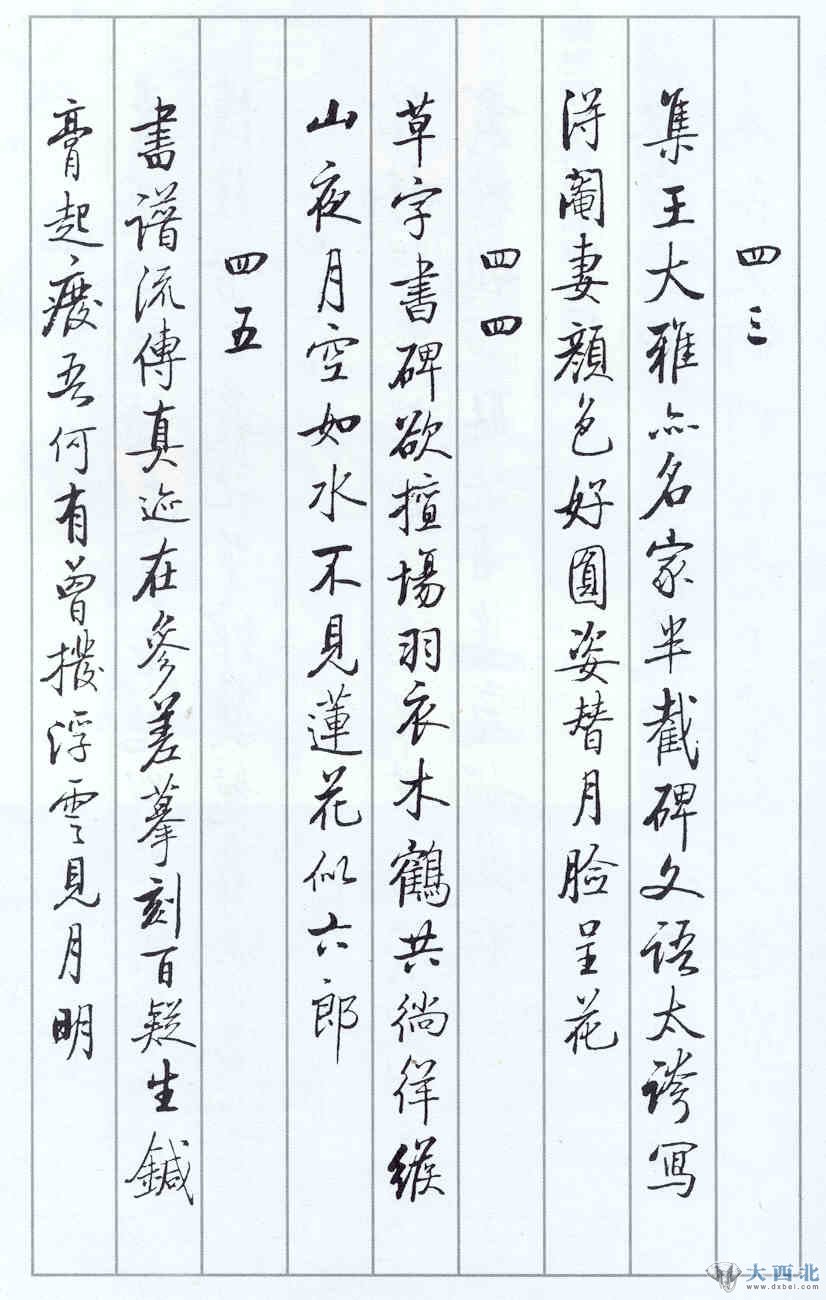 四三
集王大雅亦名家半截碑文语太誇寫
得閹妻顔色好圓姿替月臉呈花
四四
草字書碑欲擅場羽衣木鶴共徜徉緱
山夜月空如水不見蓮花似六郎
四五
書譜流傳真迹在參差摹刻百疑生鍼
膏起廢吾何有曾撥浮雲見月明
大西北
www.dxbei.com